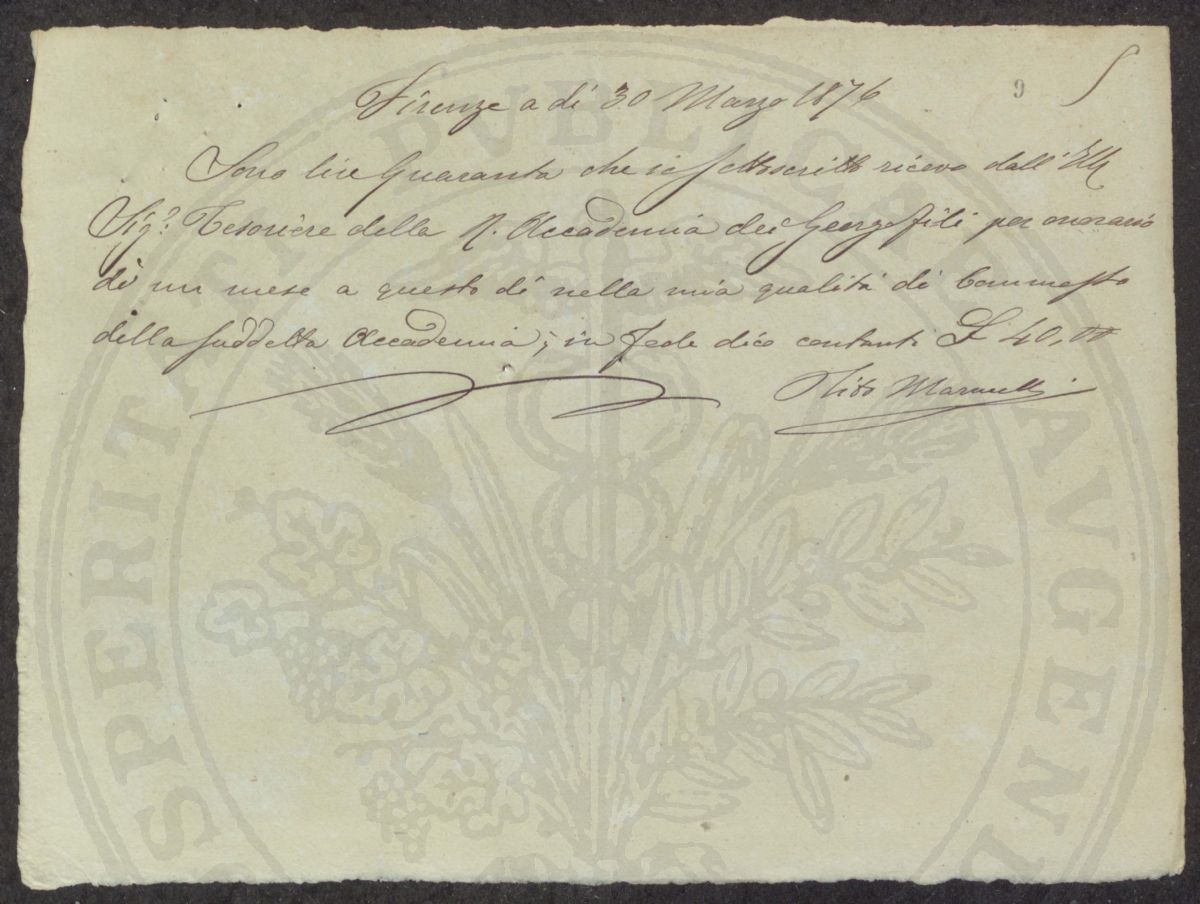 9
Firenze a dì 30 Marzo 1876
Sono lire Quaranta che io sottoscritto ricevo dall'Ill
Sig.e Tesoriere della R. Accademia dei Georgofili per onorario
di un mese a questo dì nella mia qualità di Commesso
della suddetta Accademia; in fede dico contanti £ 40,00
PROSPERITATI PVBLICAE AVGENDAE